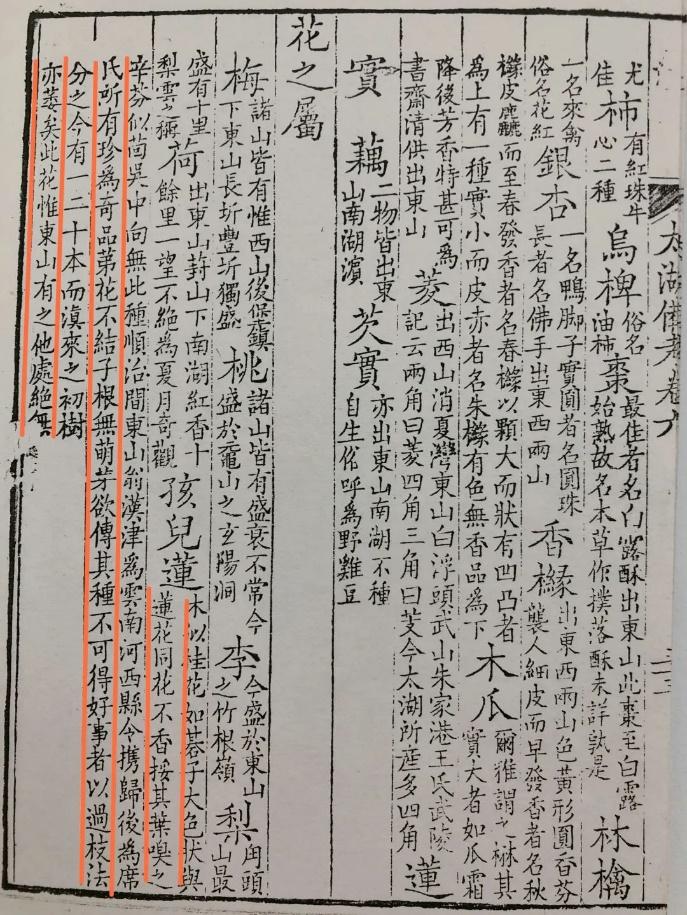 太湖備考卷六
尤佳 柿 有紅珠牛心二種 烏椑 俗名油柿 棗 最佳者名白露酥出東山此棗至白露始熟故名本草作撲落酥未詳孰是 林檎
一名來禽俗名花紅 銀杏 一名鴨脚子實圓者名圓珠長者名佛手出東西兩山 香櫞 出東西兩山色黃形圓香芬襲人細皮而早發香者名秋
櫞皮麤而至春發香者名春櫞以顆大而狀有凹凸者為上有一種實小而皮赤者名朱櫞有色無香品為下 木瓜 爾雅謂之楙其實大者如瓜霜
降後芳香特甚可為書齋清供出東山 菱 出西山消夏灣東山白浮頭武山朱家港王氏武陵記云兩角曰菱四角三角曰芰今太湖所產多四角 蓮
實 藕 二物皆出東山南湖濱 芡實 亦出東山南湖不種自生俗呼為野雞豆
花之屬
梅 諸山皆有惟西山後堡鎮下東山長圻豐圻獨盛 桃 諸山皆有盛衰不常今盛於黿山之玄陽洞 李 今盛於東山之竹根嶺 梨 甪頭山最
盛有十里梨雲之稱 荷 出東山葑山下南湖紅香十餘里一望不絕為夏月奇觀 孩兒蓮 木似桂花如碁子大色狀與蓮花同花不香挼其葉嗅之
辛芬似茴吳中向無此種順治間東山翁漢津為雲南河西縣令攜歸後為席
氏所有珍為奇品第花不結子根無萌芽欲傳其種不可得好事者以過枝法
分之今有一二十本而滇來之初樹
亦萎矣此花惟東山有之他處絕無